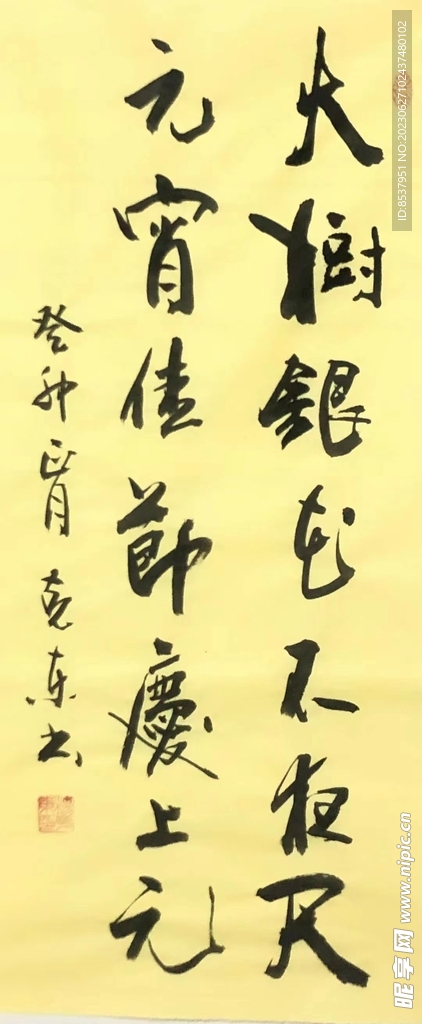 火樹銀花不夜天
元宵佳節慶上元
癸卯正月 克东书
ID:8537951 NO:20230627102437480102
昵享网 www.nipic.cn